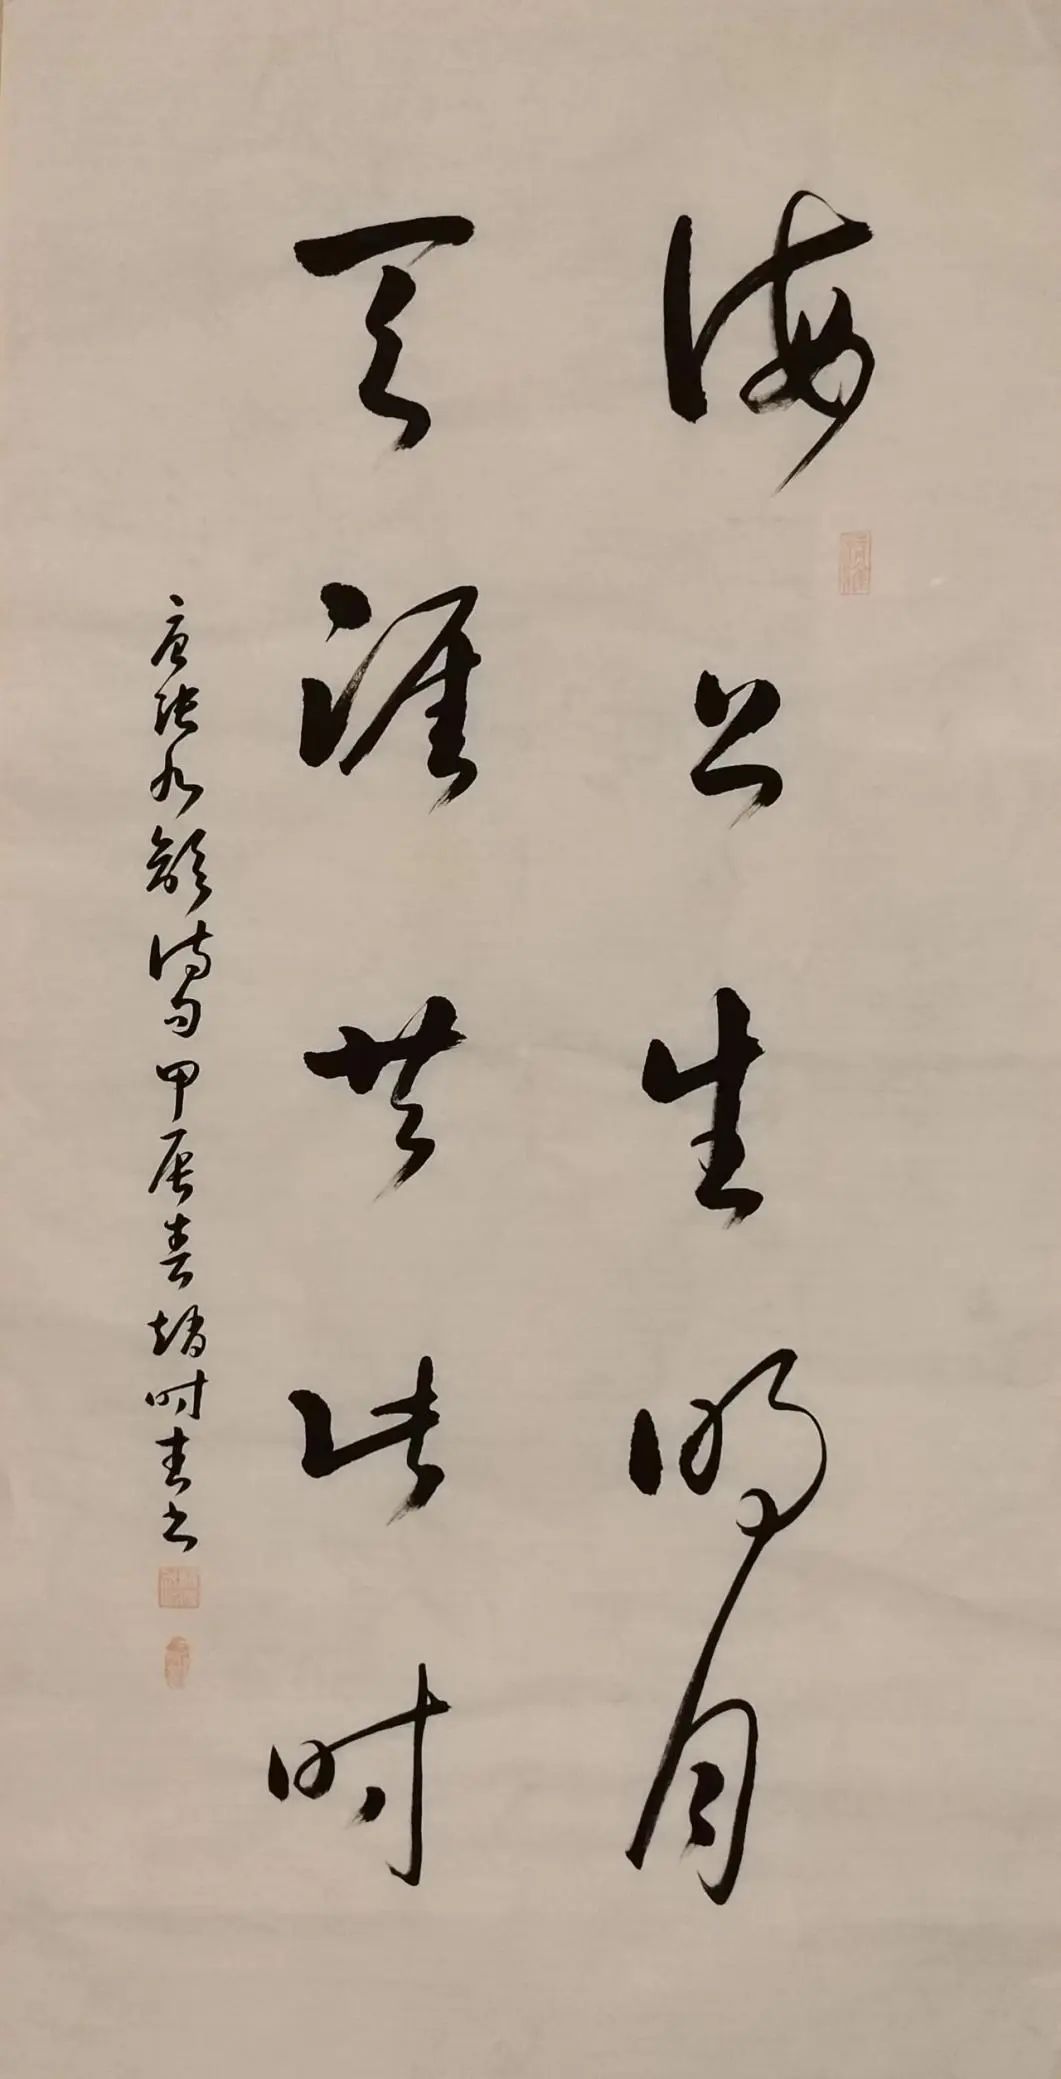 海上生明月
天涯共此时
唐张九龄诗句甲辰春赵时春书